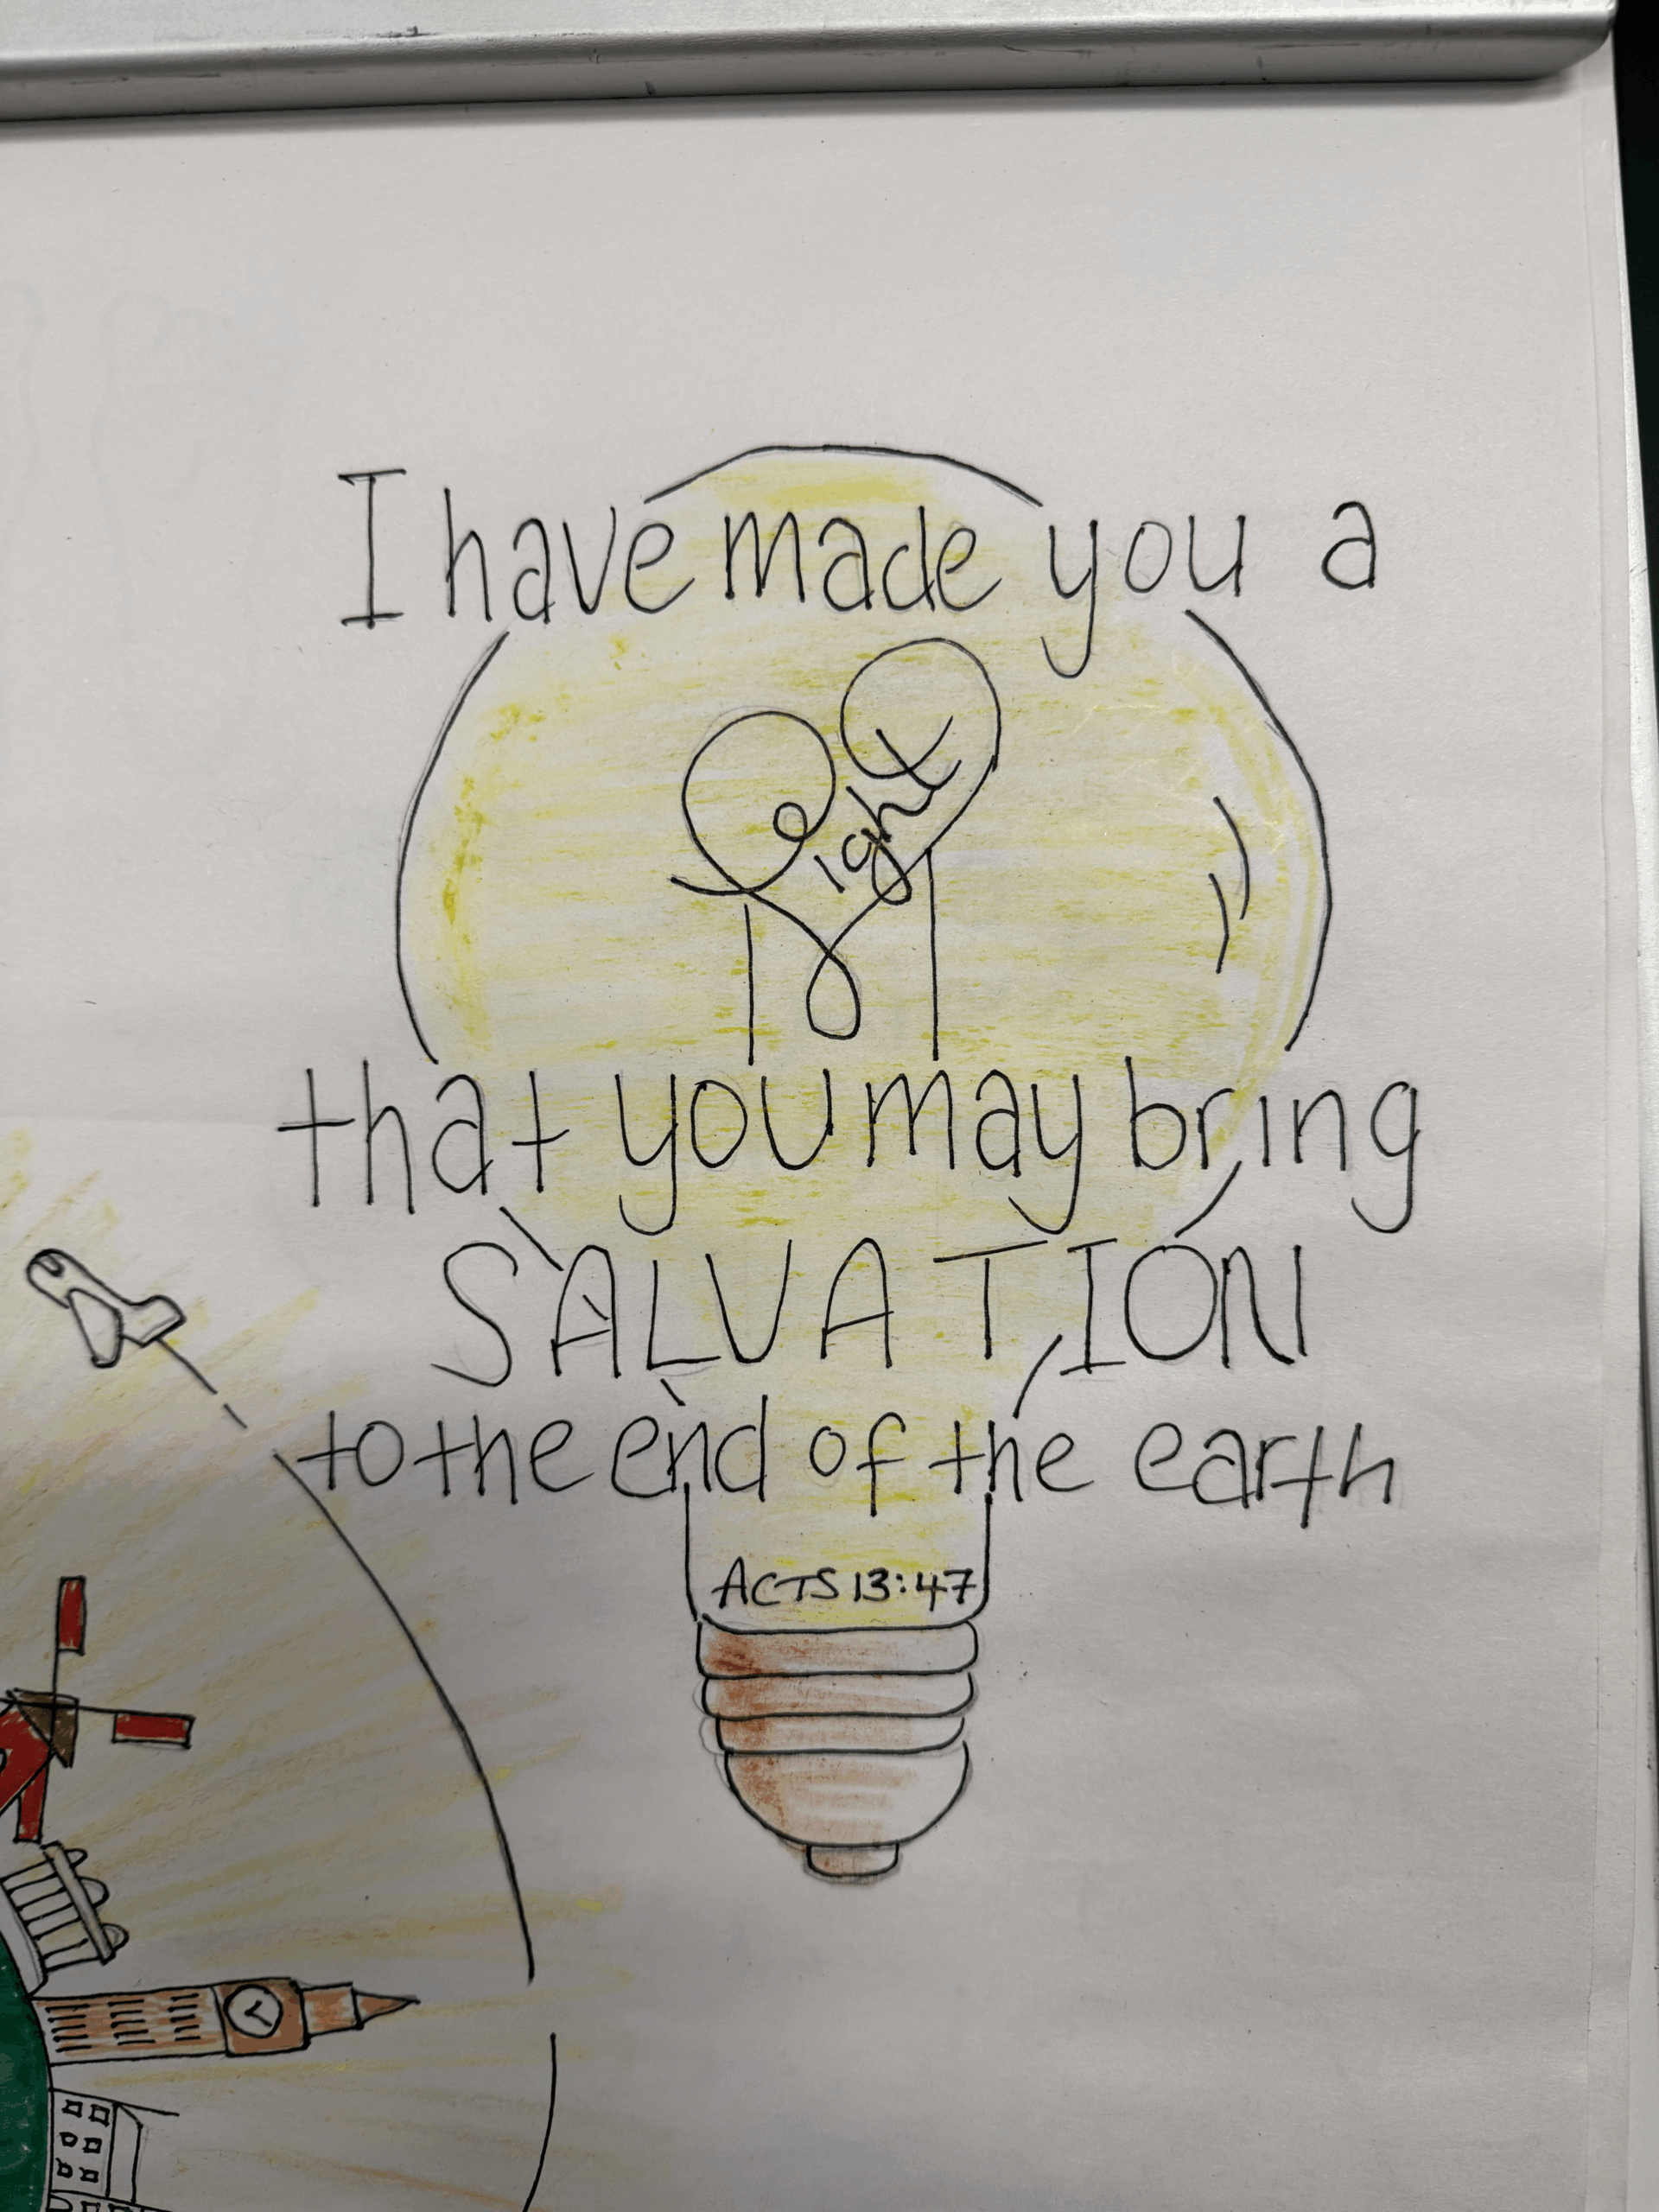 I have made you a
light
that you may bring
SALVATION
to the end of the earth
ACTS 13:47